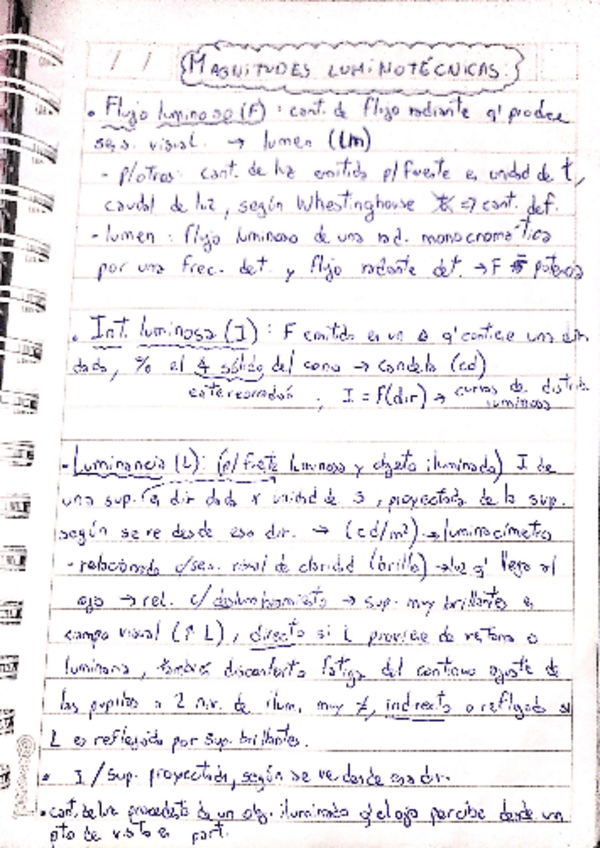 / /
MAGNITUDES LUMINOTÉCNICAS:
• Flujo luminoso (F): cant. de flujo radiante q' produce
sens. visual. → lumen (lm)
- p/otros: cant. de luz emitida p/fuente en unidad de t,
caudal de luz, según Whestinghouse ⇒ cant. def.
- lumen: flujo luminoso de una rad. monocromática
por una frec. det. y flujo radiante det. → F potencia
• Int. luminosa (I): F emitido en un q' contiene una dir.
dada, % el ∡ sólido del cono → candela (cd)
estereorradán ; I = F(dir) → curvas de distrib.
luminosa
- Luminancia (L): (p/ fuente luminosa y objeto iluminado) I de
una sup. en dir dada x unidad de s, proyectada de la sup.
según se ve desde esa dir. → (cd/m²) → luminacímetro
- relacionada c/sen. visual de claridad (brillo) → luz q' llega al
ojo → rel. c/ deslumbramiento → sup. muy brillantes en
campo visual (↑ L), directo si L proviene de ventana o
luminaria, también disconforto fatiga del continuo ajuste de
las pupilas a 2 niv. de ilum. muy ≠, indirecto o reflejado si
L es reflejada por sup. brillantes.
• I / sup. proyectada, según se ve desde esa dir.
• cant. de luz procedente de un obj. iluminado q' el ojo percibe desde un
pto de vista en part.